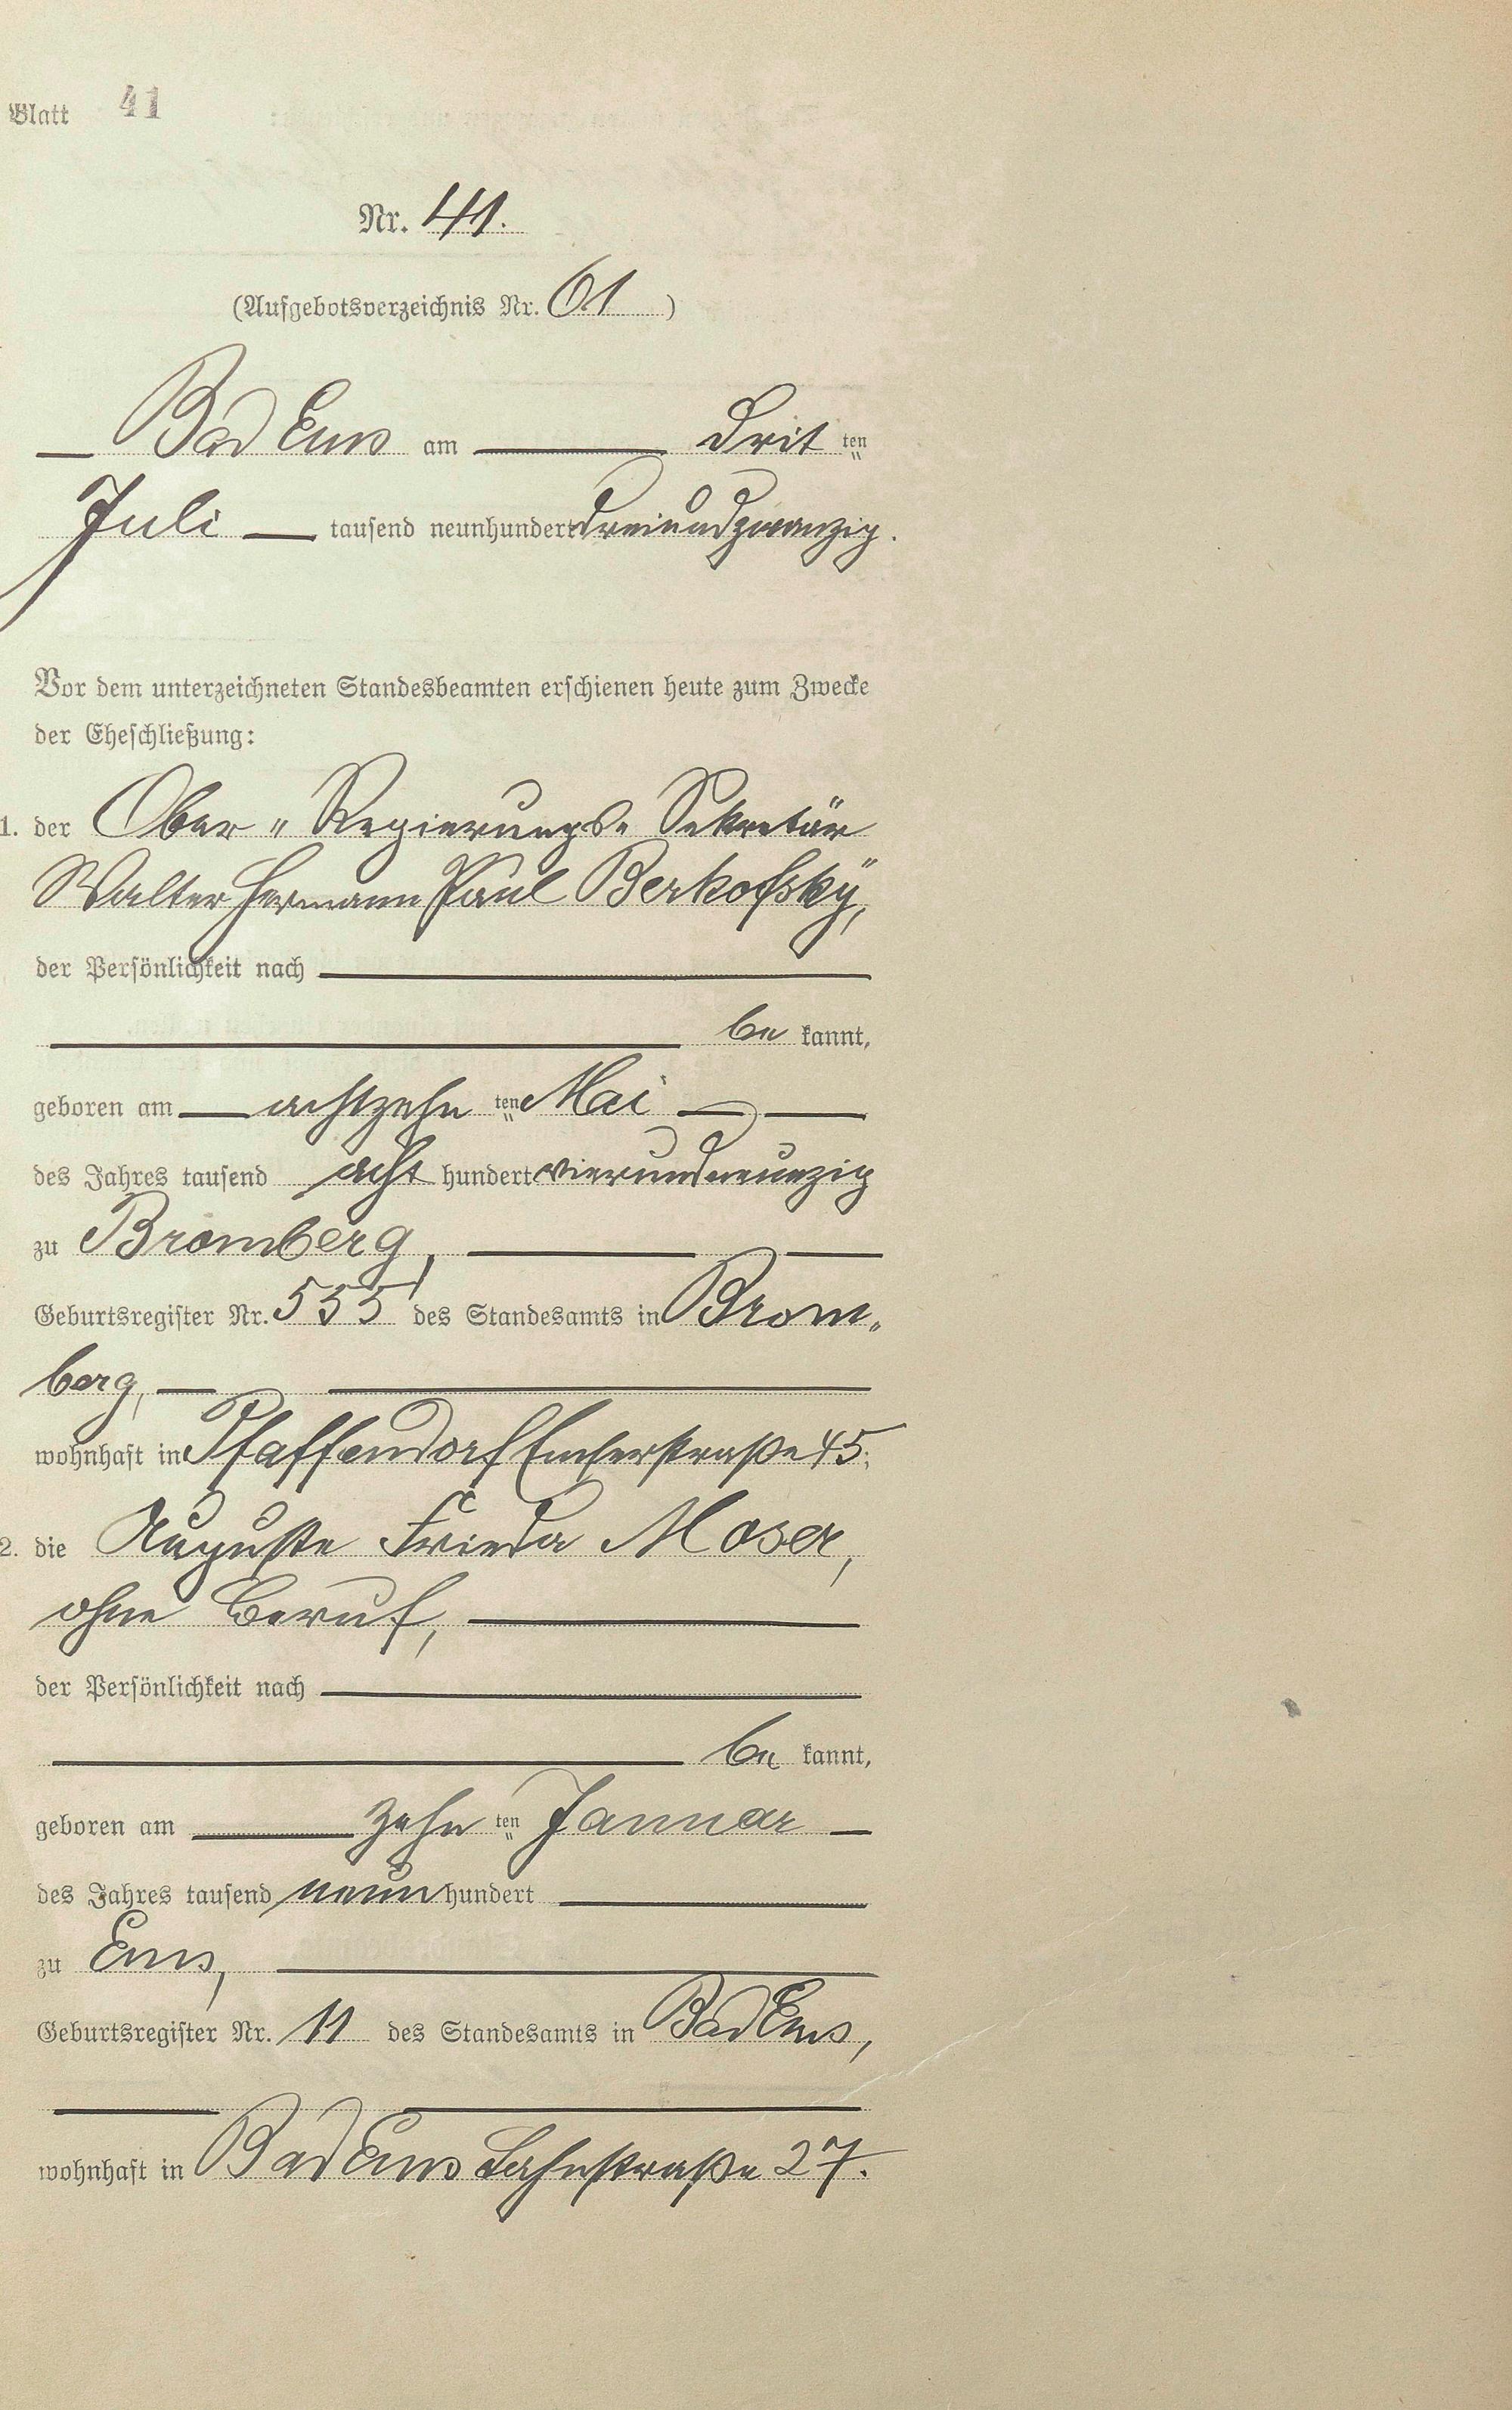 Blatt 41
Nr. 41.
(Aufgebotsverzeichnis Nr. 61)
Bad Ems am Drit ten
Juli tausend neunhundert dreiundzwanzig.
Vor dem unterzeichneten Standesbeamten erschienen heute zum Zwecke
der Eheschließung:
1. der Ober- Regierungs- Sekretär
Walter Hermann Paul Berkofsky,
der Persönlichkeit nach
be kannt,
geboren am achtzehn ten Mai
des Jahres tausend acht hundert vierundneunzig
zu Bromberg,
Geburtsregister Nr. 555 des Standesamts in Brom-
berg,
wohnhaft in Pfaffendorf Emserstraße 45;
2. die Auguste Frieda Moser,
ohne Beruf,
der Persönlichkeit nach
be kannt,
geboren am zehn ten Januar
des Jahres tausend neun hundert
zu Ems,
Geburtsregister Nr. 11 des Standesamts in Bad Ems,
wohnhaft in Bad Ems Lahnstraße 27.